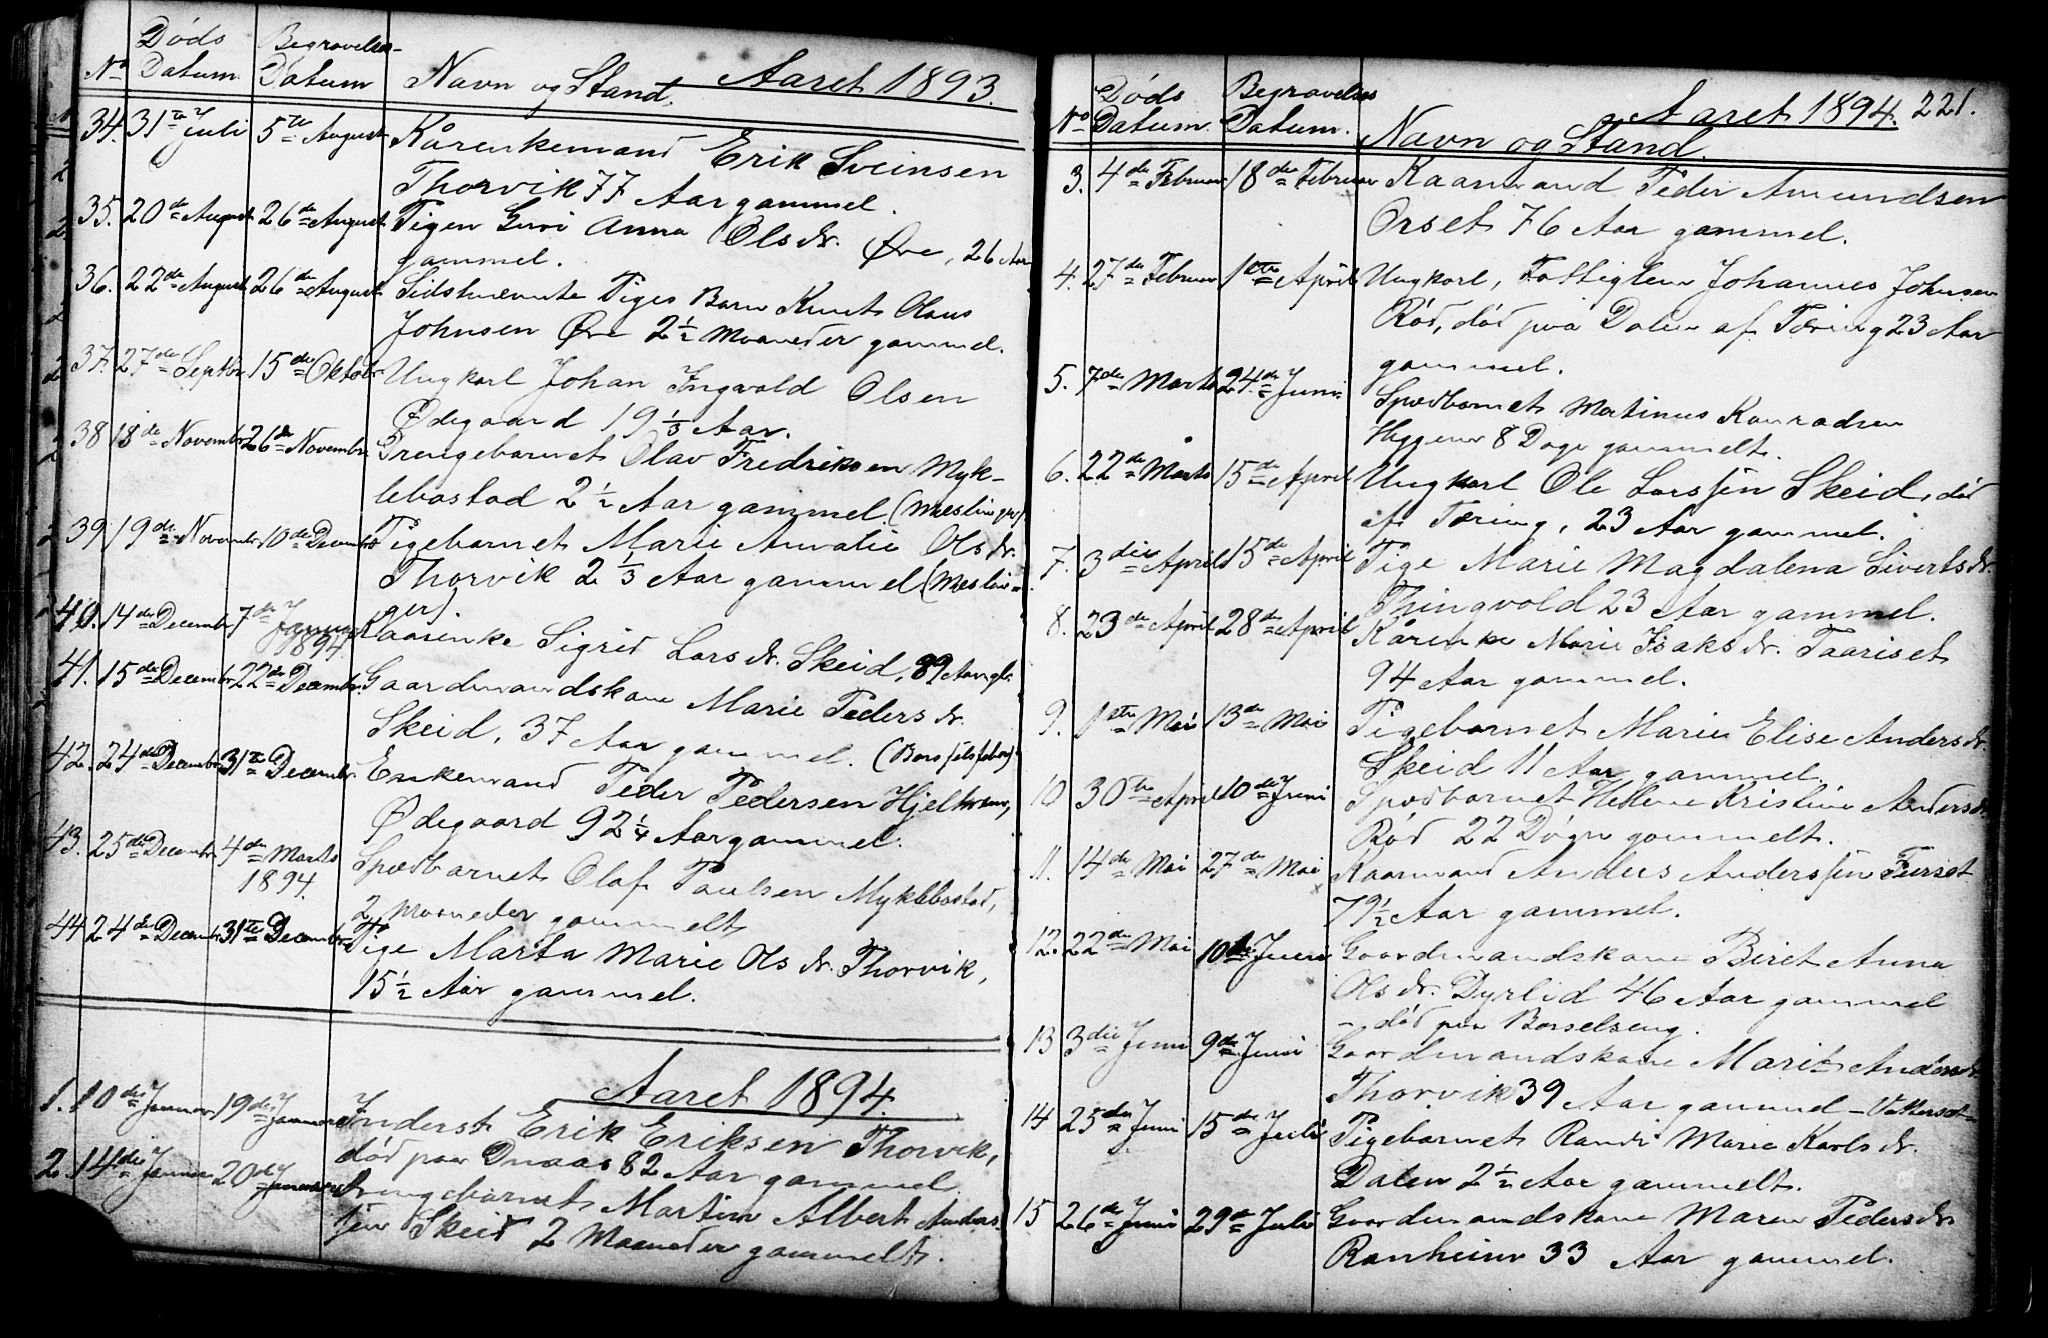 Døds Begravelses-
No Datum Datum Navn og Stand. Aaret 1893.
34. 31te Juli 5te August Kårenkemand Erik Sveinsen
Thorvik 77 Aar gammel.
35. 20de August 26de August Pigen Guri Anna Olsdr. Øre, 26 Aar
gammel.
36. 22de August 26de August Sidstnævnte Piges Barn Knut Olaus
Johnsen Øre 2½ Maaneder gammel.
37. 27de Septbr 15de Oktobr Ungkarl Johan Ingvald Olsen
Ødegaard 19⅓ Aar.
38 18de Novembr 26de Novembr. Drengebarnet Olav Fredriksen Myk-
lebostad 2½ Aar gammel (Meslinger)
39 19de Novembr. 10de Decembr Pigebarnet Marie Amalie Olsdr.
Thorvik 2⅓ Aar gammel (Meslin-
ger).
40. 14de Decembr 7de Januar 1894 Kaarenke Sigrid Larsdr. Skeid, 89 Aar gl.
41. 15de Decembr 22de Decembr. Gaardmandskone Marie Pedersdr.
Skeid, 37 Aar gammel. (Barselsfeber)
42. 24de Decembr 31te Decembr. Enkemand Peder Pedersen
Ødegaard 92¼ Aar gammel.
43. 25de Decembr. 4de Marts 1894. Spædbarnet Olaf Paulsen Myklebostad,
2 Maaneder gammelt
44 24de Decembr 31te Decembr. Pige Marta Marie Olsdr. Thorvik,
15½ Aar gammel.
Aaret 1894.
1. 10de Januar 19de Januar Inderst Erik Eriksen Thorvik,
død paa 82 Aar gammel
2. 14de Januar 20de Januar Drengebarnet Martin Albert Anders-
sen Skeid 2 Maaneder gammelt.
Aaret 1894. 221.
Døds Begravelses
No Datum. Datum. Navn og Stand.
3. 4de Februar 18de Februar Kaarmand Peder Amundsen
Orset 76 Aar gammel.
4. 27de Februar 1ste April Ungkarl, Fattiglem Johannes Johnsen
Rød, død paa Dalen af Tæring 23 Aar
gammel.
5. 7de Marts 24de Juni Spædbarnet Martinus Konradsen
8 Dage gammelt.
6. 22de Marts 15de April Ungkarl Ole Larssen Skeid, død
af Tæring, 23 Aar gammel.
7. 3die April 15de April Pige Marie Magdalena Sivertsdr.
Thingvold 23 Aar gammel.
8. 23de April 28de April Kårenke Marie Isaksdr. Taariset
94 Aar gammel.
9. 1ste Mai 13de Mai Pigebarnet Maria Elise Andersdr.
Skeid 11 Aar gammel.
10 30te April 10de Juni Spædbarnet Hellene Kristine Andersdr.
Rød 22 Døgn gammelt.
11. 14de Mai 27de Mai Kaarmand Anders Anderssen Furset
79½ Aar gammel.
12. 22de Mai 10de Juni Gaardmandskone Beret Anna
Olsdr. Dyrlid 46 Aar gammel
- død paa Barselseng.
13 3die Juni 9de Juni Gaardmandskone Marit Andersdr
Thorvik 39 Aar gammel -
14 25de Juni 15de Juli Pigebarnet Randi Marie Karlsdr.
Dalen 2½ Aar gammelt.
15 26de Juni 29de Juli Gaardmandskone Maren Pedersdr.
Ranheim 33 Aar gammel.